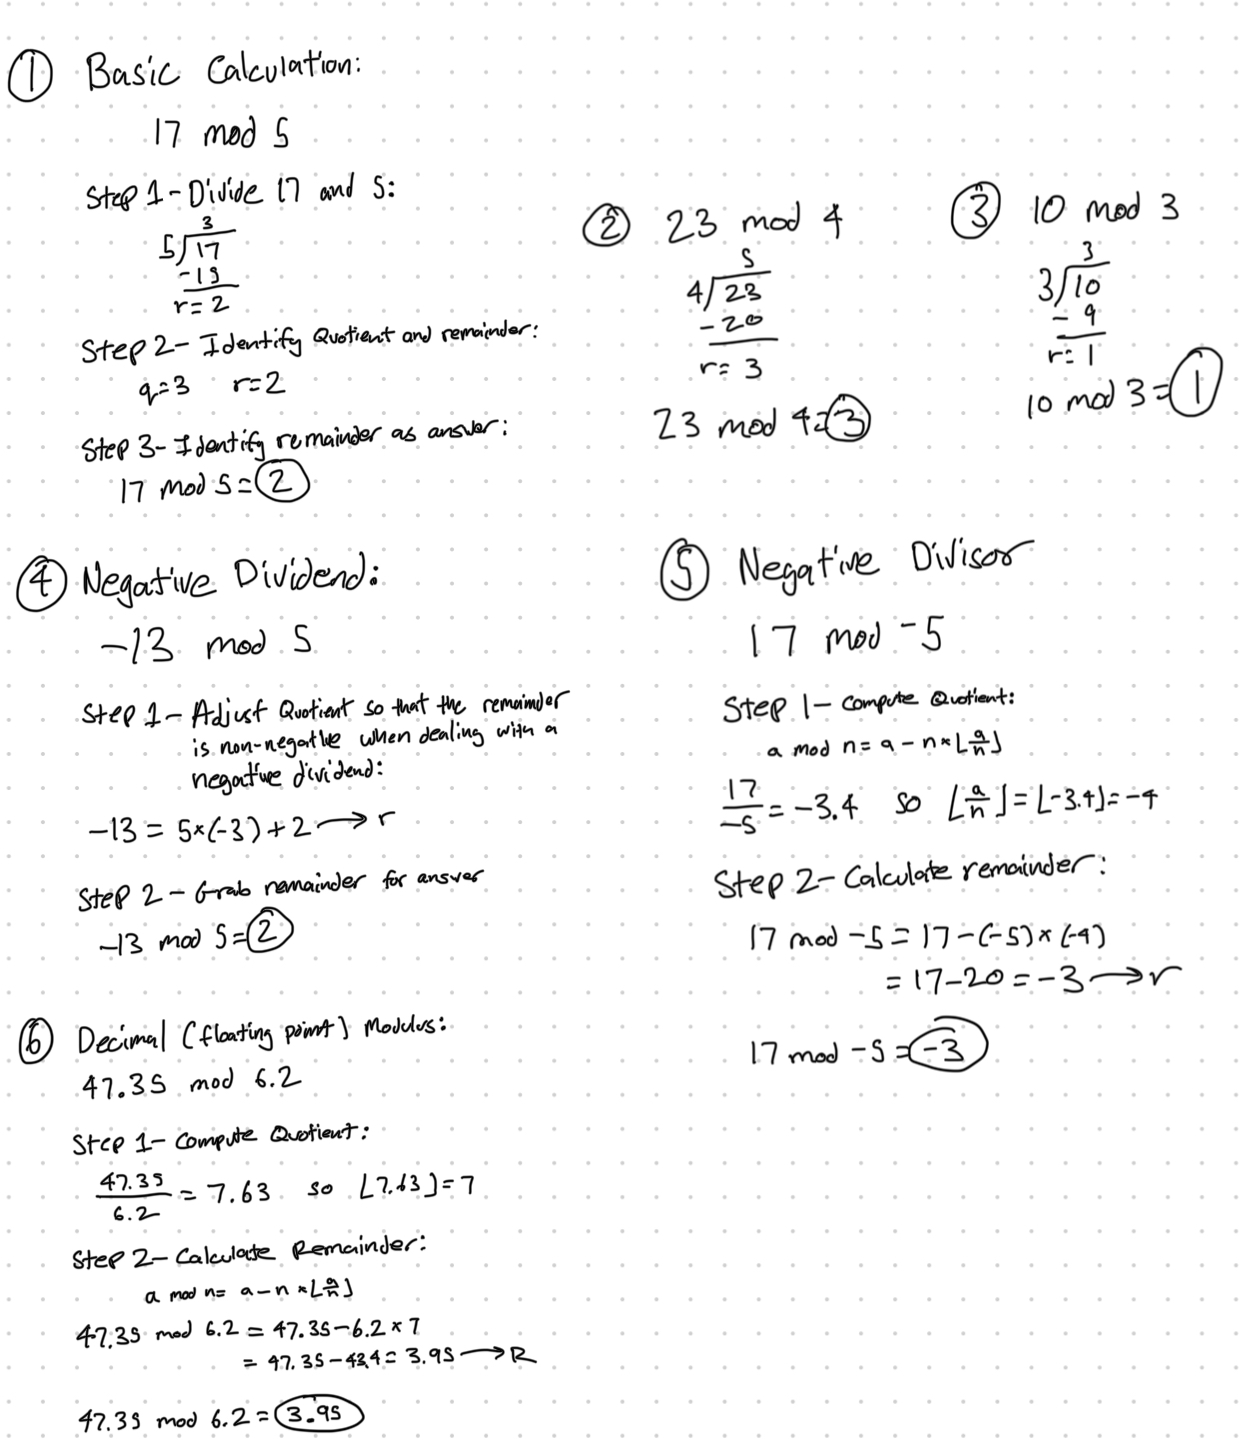 ① Basic Calculation:
17 mod 5
Step 1 - Divide 17 and 5:
3
5/17
-15
r=2
Step 2 - Identify Quotient and remainder:
q=3 r=2
Step 3 - Identify remainder as answer:
17 mod 5 = 2
② 23 mod 4
5
4/23
-20
r= 3
23 mod 4 = 3
③ 10 mod 3
3
3/10
- 9
r= 1
10 mod 3 = 1
④ Negative Dividend:
-13 mod 5
Step 1 - Adjust Quotient so that the remainder
is non-negative when dealing with a
negative dividend:
-13 = 5×(-3)+2 → r
Step 2 - Grab remainder for answer
-13 mod 5 = 2
⑤ Negative Divisor
17 mod -5
Step 1 - Compute Quotient:
a mod n = a - n×⌊a/n⌋
17/-5 = -3.4 so ⌊a/n⌋ = ⌊-3.4⌋ = -4
Step 2 - Calculate remainder:
17 mod -5 = 17-(-5)×(-4)
= 17-20 = -3 → r
17 mod -5 = -3
⑥ Decimal (floating point) Modulus:
47.35 mod 6.2
Step 1 - Compute Quotient:
47.35/6.2 = 7.63 so ⌊7.63⌋=7
Step 2 - Calculate Remainder:
a mod n = a - n×⌊a/n⌋
47.35 mod 6.2 = 47.35-6.2×7
= 47.35-43.4 = 3.95 → R
47.35 mod 6.2 = 3.95